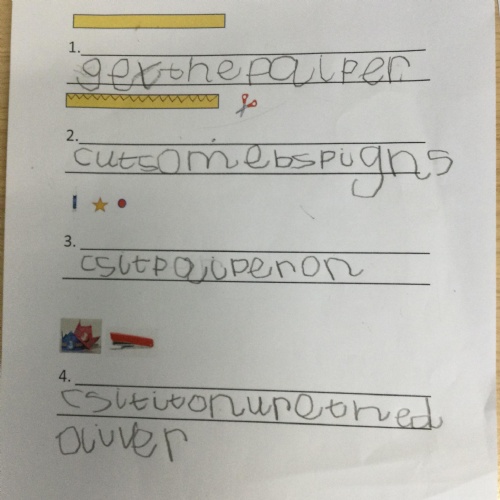 1. getthepaiper
2. cutsomebspigns
3. csitpaiperon
4. csititonurethed
oliver